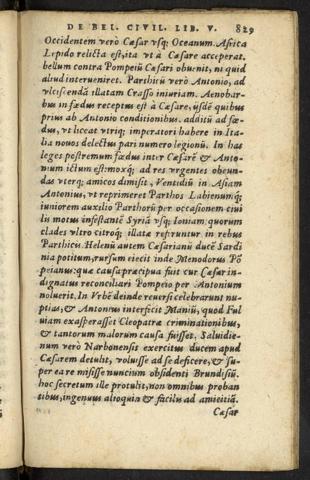 DE BEL. CIVIL. LIB. V. 829
Occidentem verò Cæsar vsq; Oceanum. Africa
Lepido relicta est, ita vt à Cæsare acceperat.
bellum contra Pompeiū Cæsari obuenit, ni quid
aliud interueniret. Parthicū verò Antonio, ad
vlciscendā illatam Crasso iniuriam. Aenobar-
bus in fœdus receptus est à Cæsare, iisdē quibus
prius ab Antonio conditionibus. additū ad fœ-
dus, vt liceat vtriq; imperatori habere in Ita-
lia nouos delectus pari numero legionū. In has
leges postremum fœdus inter Cæsarē & Anto-
nium ictum est: moxq; ad res vrgentes obeun-
das vterq; amicos dimisit, Ventidiū in Asiam
Antonius, vt reprimeret Parthos Labienumq;
iuniorem auxilio Parthorū per occasionem ciui
lis motus infestantē Syriā vsq; Ioniam: quorum
clades vltro citroq; illatæ referuntur in rebus
Parthicis. Helenū autem Cæsarianū ducē Sardi
nia potitum, rursum eiecit inde Menodorus Pō
peianus: quæ causa præcipua fuit cur Cæsar in-
dignatus reconciliari Pompeio per Antonium
noluerit. In Vrbē deinde reuersi celebrarunt nu-
ptias, & Antonius interfecit Maniū, quod Ful
uiam exasperasset Cleopatræ criminationibus,
& tantorum malorum causa fuisset. Saluidie-
num verò Narbonensis exercitus ducem apud
Cæsarem detulit, voluisse ad se deficere, & su-
per ea re misisse nuncium obsidenti Brundisiū.
hoc secretum ille protulit, non omnibus proban
tibus, ingenuus alioquin & facilis ad amicitiā.
Cæsar